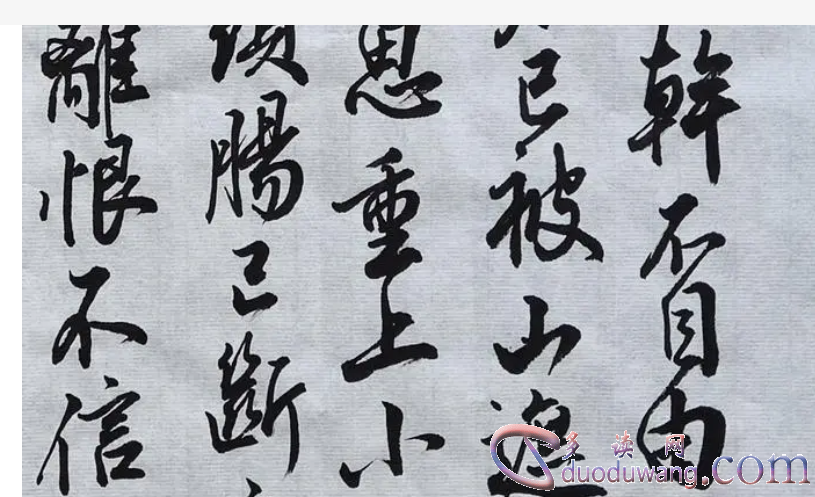 幹不自由
已被山遮
思重上小
頭腸已斷
離恨不信
多读网
duoduwang.com